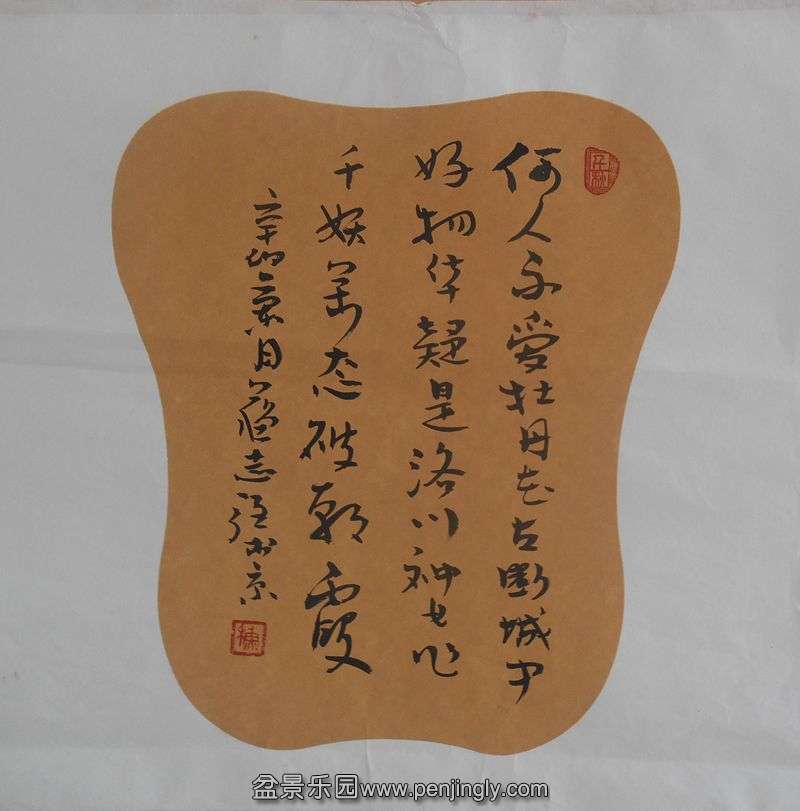 何人不爱牡丹花占断城中
好物华疑是洛川神女作
千娇萬态破朝霞
辛卯夏月 志强书
盆景乐园www.penjingly.com